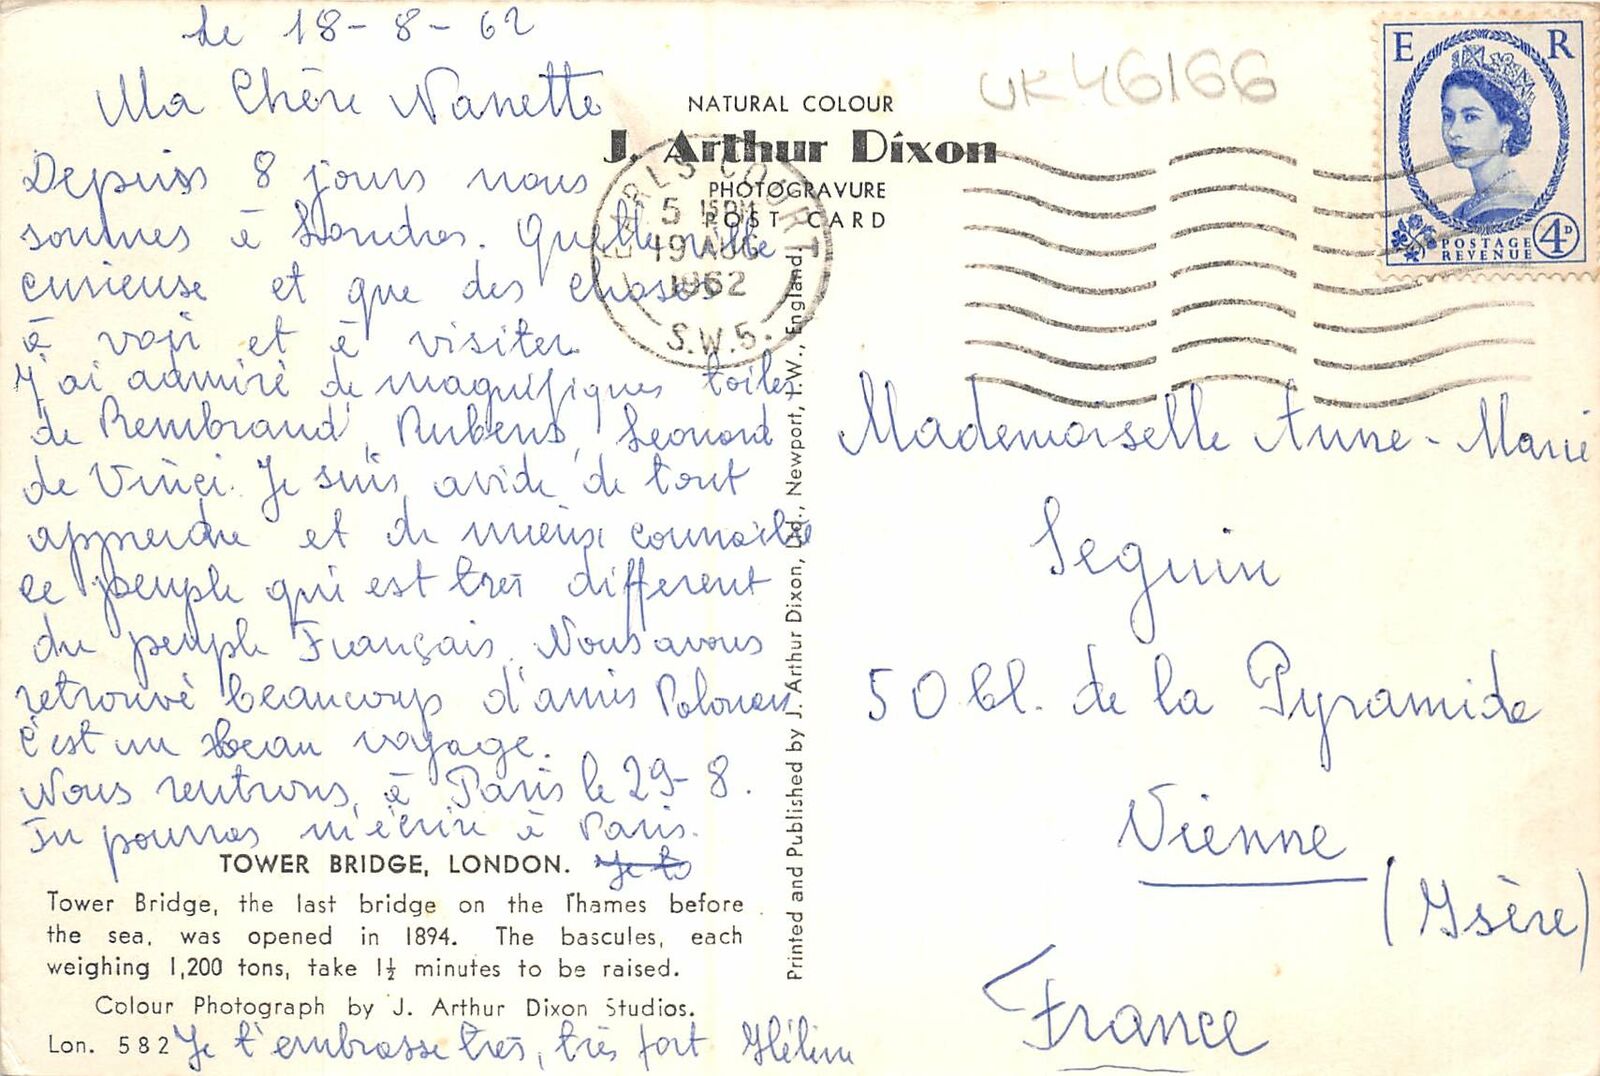 le 18-8-62
Ma Chère Nanette
Depuis 8 jours nous
sommes à Londres. Quelle ville
curieuse et que des choses
à voir et à visiter.
J'ai admiré de magnifiques toiles
de Rembrand, Rubens, Leonard
de Vinci. Je suis avide de tout
apprendre et de mieux connaître
ce peuple qui est très different
du peuple Français. Nous avons
retrouvé beaucoup d'amis Polonais
C'est un beau voyage.
Nous rentrons à Paris le 29-8.
Tu pourras m'écrire à Paris.
Je te
TOWER BRIDGE, LONDON.
Tower Bridge, the last bridge on the Thames before
the sea, was opened in 1894. The bascules, each
weighing 1,200 tons, take 1½ minutes to be raised.
Colour Photograph by J. Arthur Dixon Studios.
Lon. 582
Je t'embrasse très, très fort Hélène
NATURAL COLOUR
J. Arthur Dixon
PHOTOGRAVURE
POST CARD
Printed and Published by J. Arthur Dixon, Ltd., Newport, I.W., England.
EARLS COURT
5 15 PM
19 AUG
1962
S.W.5.
UK46166
E R
POSTAGE
REVENUE
4D
Mademoiselle Anne-Marie
Seguin
50 bl. de la Pyramide
Vienne
(Isère)
France